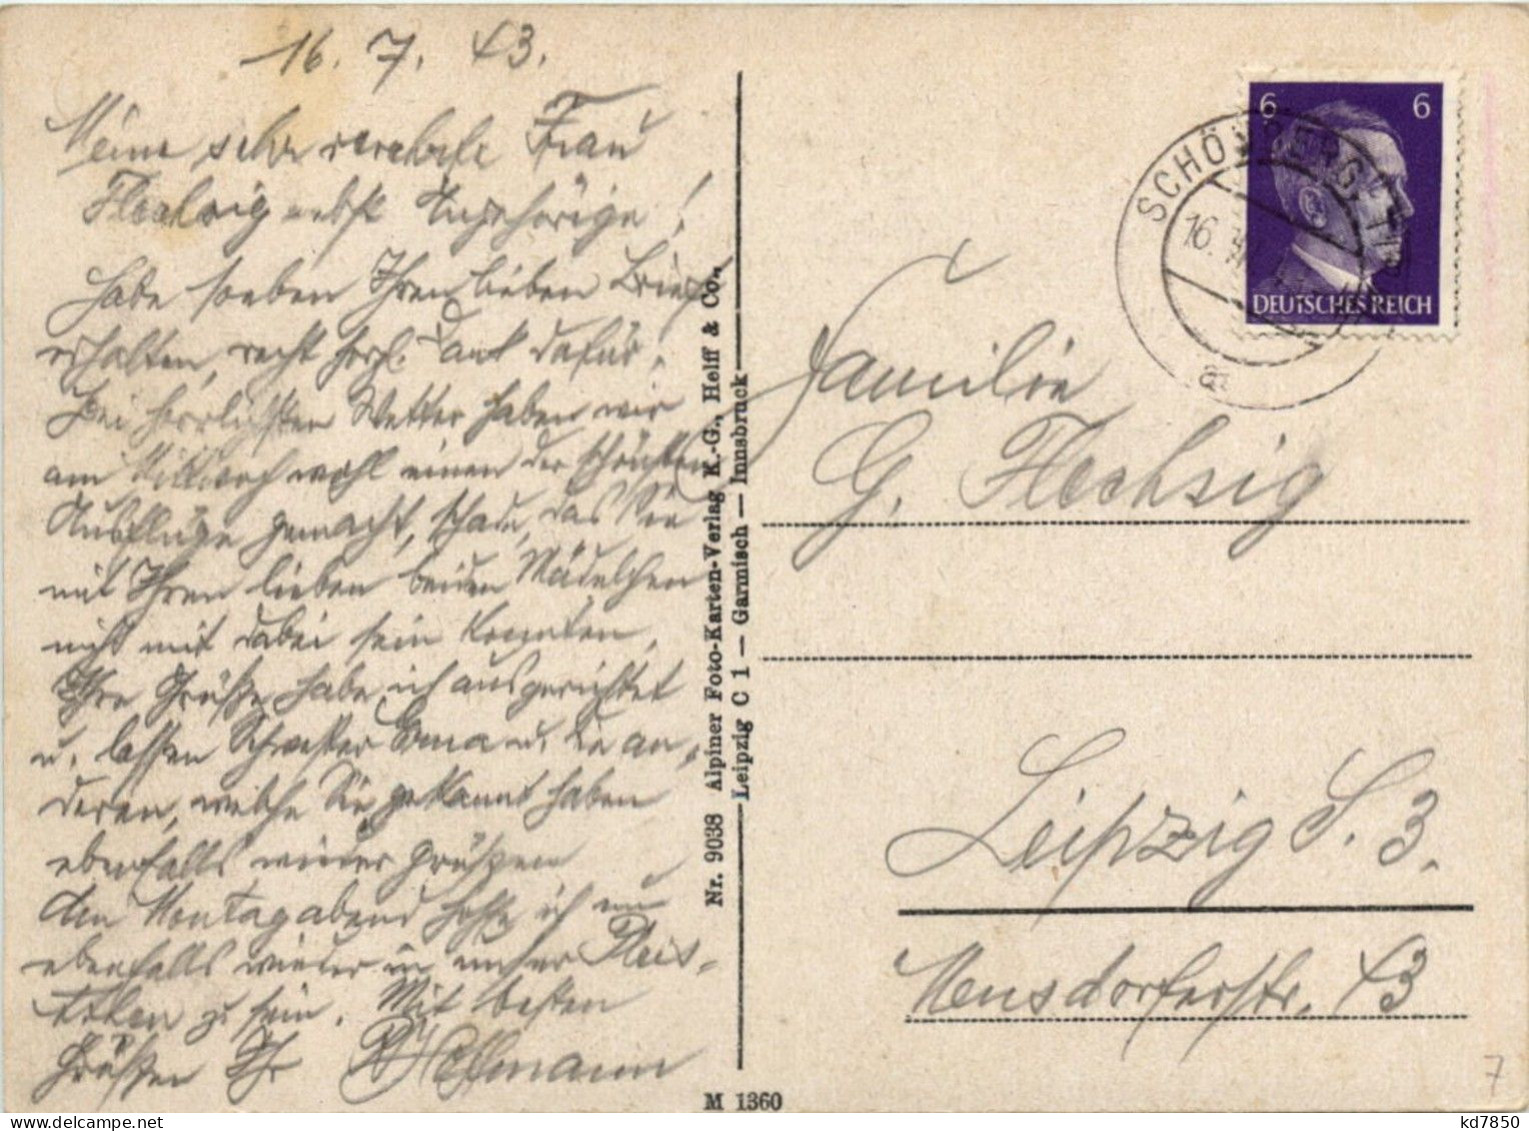 16. 7. 43.
Meine sehr verehrte Frau
Flechsig nebst Angehörige!
Habe soeben Ihren lieben Brief
erhalten, recht herzl. Dank dafür.
Bei herrlichsten Wetter haben wir
am Mittwoch wohl einen der schönsten
Ausflüge gemacht, schade, das Sie
mit Ihren lieben beiden Mädelchen
nicht mit dabei sein konnten.
Ihre Grüße habe ich ausgerichtet
u. lassen Schwester Erna u. die an-
deren, welche Sie gekannt haben
ebenfalls wieder grüßen
den Montagabend hoffe ich nun
ebenfalls wieder in unser Pleis-
athen zu sein. Mit besten
Grüßen Ihr Hoffmann
Nr. 9038 Alpiner Foto-Karten-Verlag K.-G., Helff & Co.,
Leipzig C 1 — Garmisch — Innsbruck
M 1360
6 6
DEUTSCHES REICH
SCHÖNBERG
16. VII.
a
Familie
G. Flechsig
Leipzig S. 3.
Mensdorferstr. 43
7
kd7850